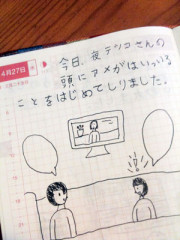 4月27日
今日。夜デンコさんの
頭にアメがはいっいる
ことをはじめてしりました。